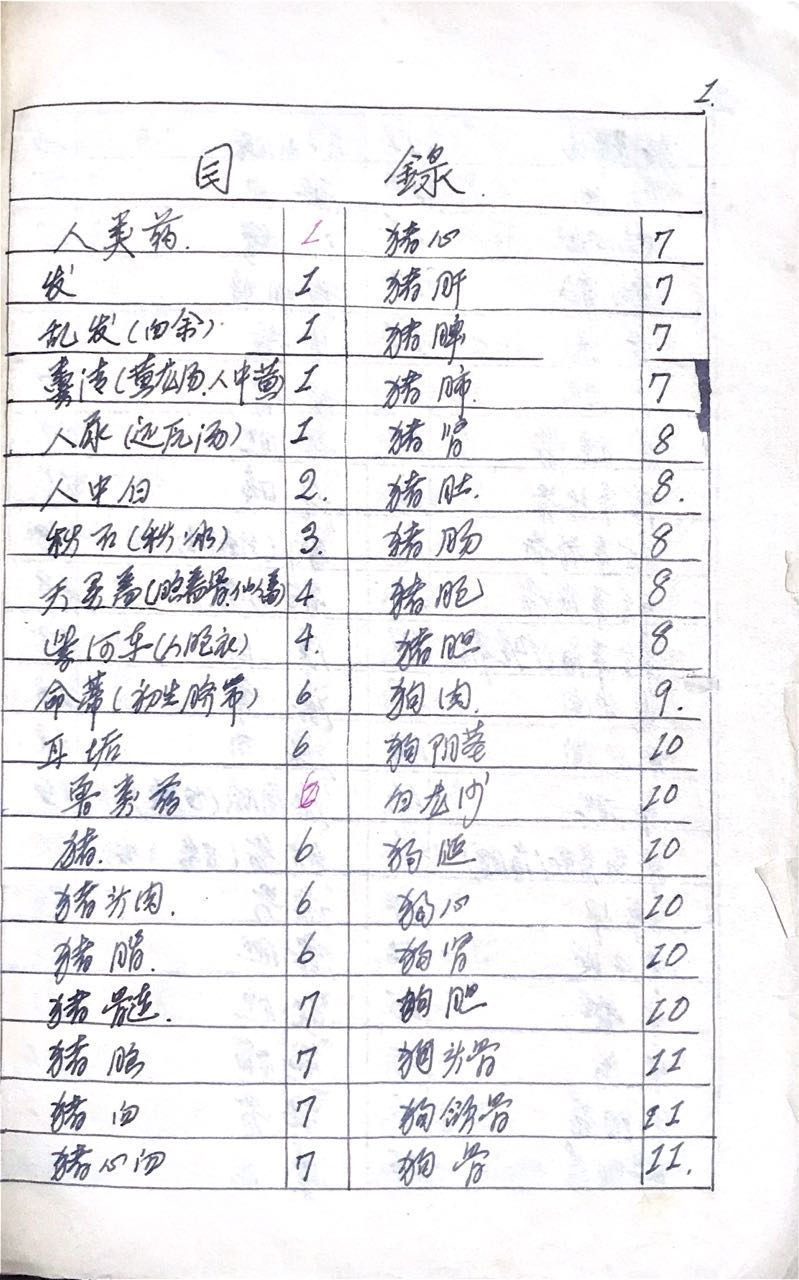 1.
目 錄.
人类药. 1
发 1
乱发(血余) 1
粪清(黄龙汤.人中黄) 1
人尿(还元汤) 1
人中白 2.
秋石(秋冰) 3.
天灵盖(脑盖骨.仙人盖) 4
紫河车(人胞衣) 4.
命蒂(初生脐带) 6
耳垢 6
兽类药 6
猪. 6
猪头肉. 6
猪脂. 6
猪骨髓. 7
猪脑 7
猪血 7
猪心血 7
猪心 7
猪肝 7
猪脾 7
猪肺. 7
猪肾 8
猪肚. 8.
猪肠 8
猪胞 8
猪胆 8
狗肉. 9.
狗阴茎 10
白龙沙 10
狗 10
狗心 10
狗肾 10
狗胆 10
狗头骨 11
狗颌骨 11
狗骨 11.